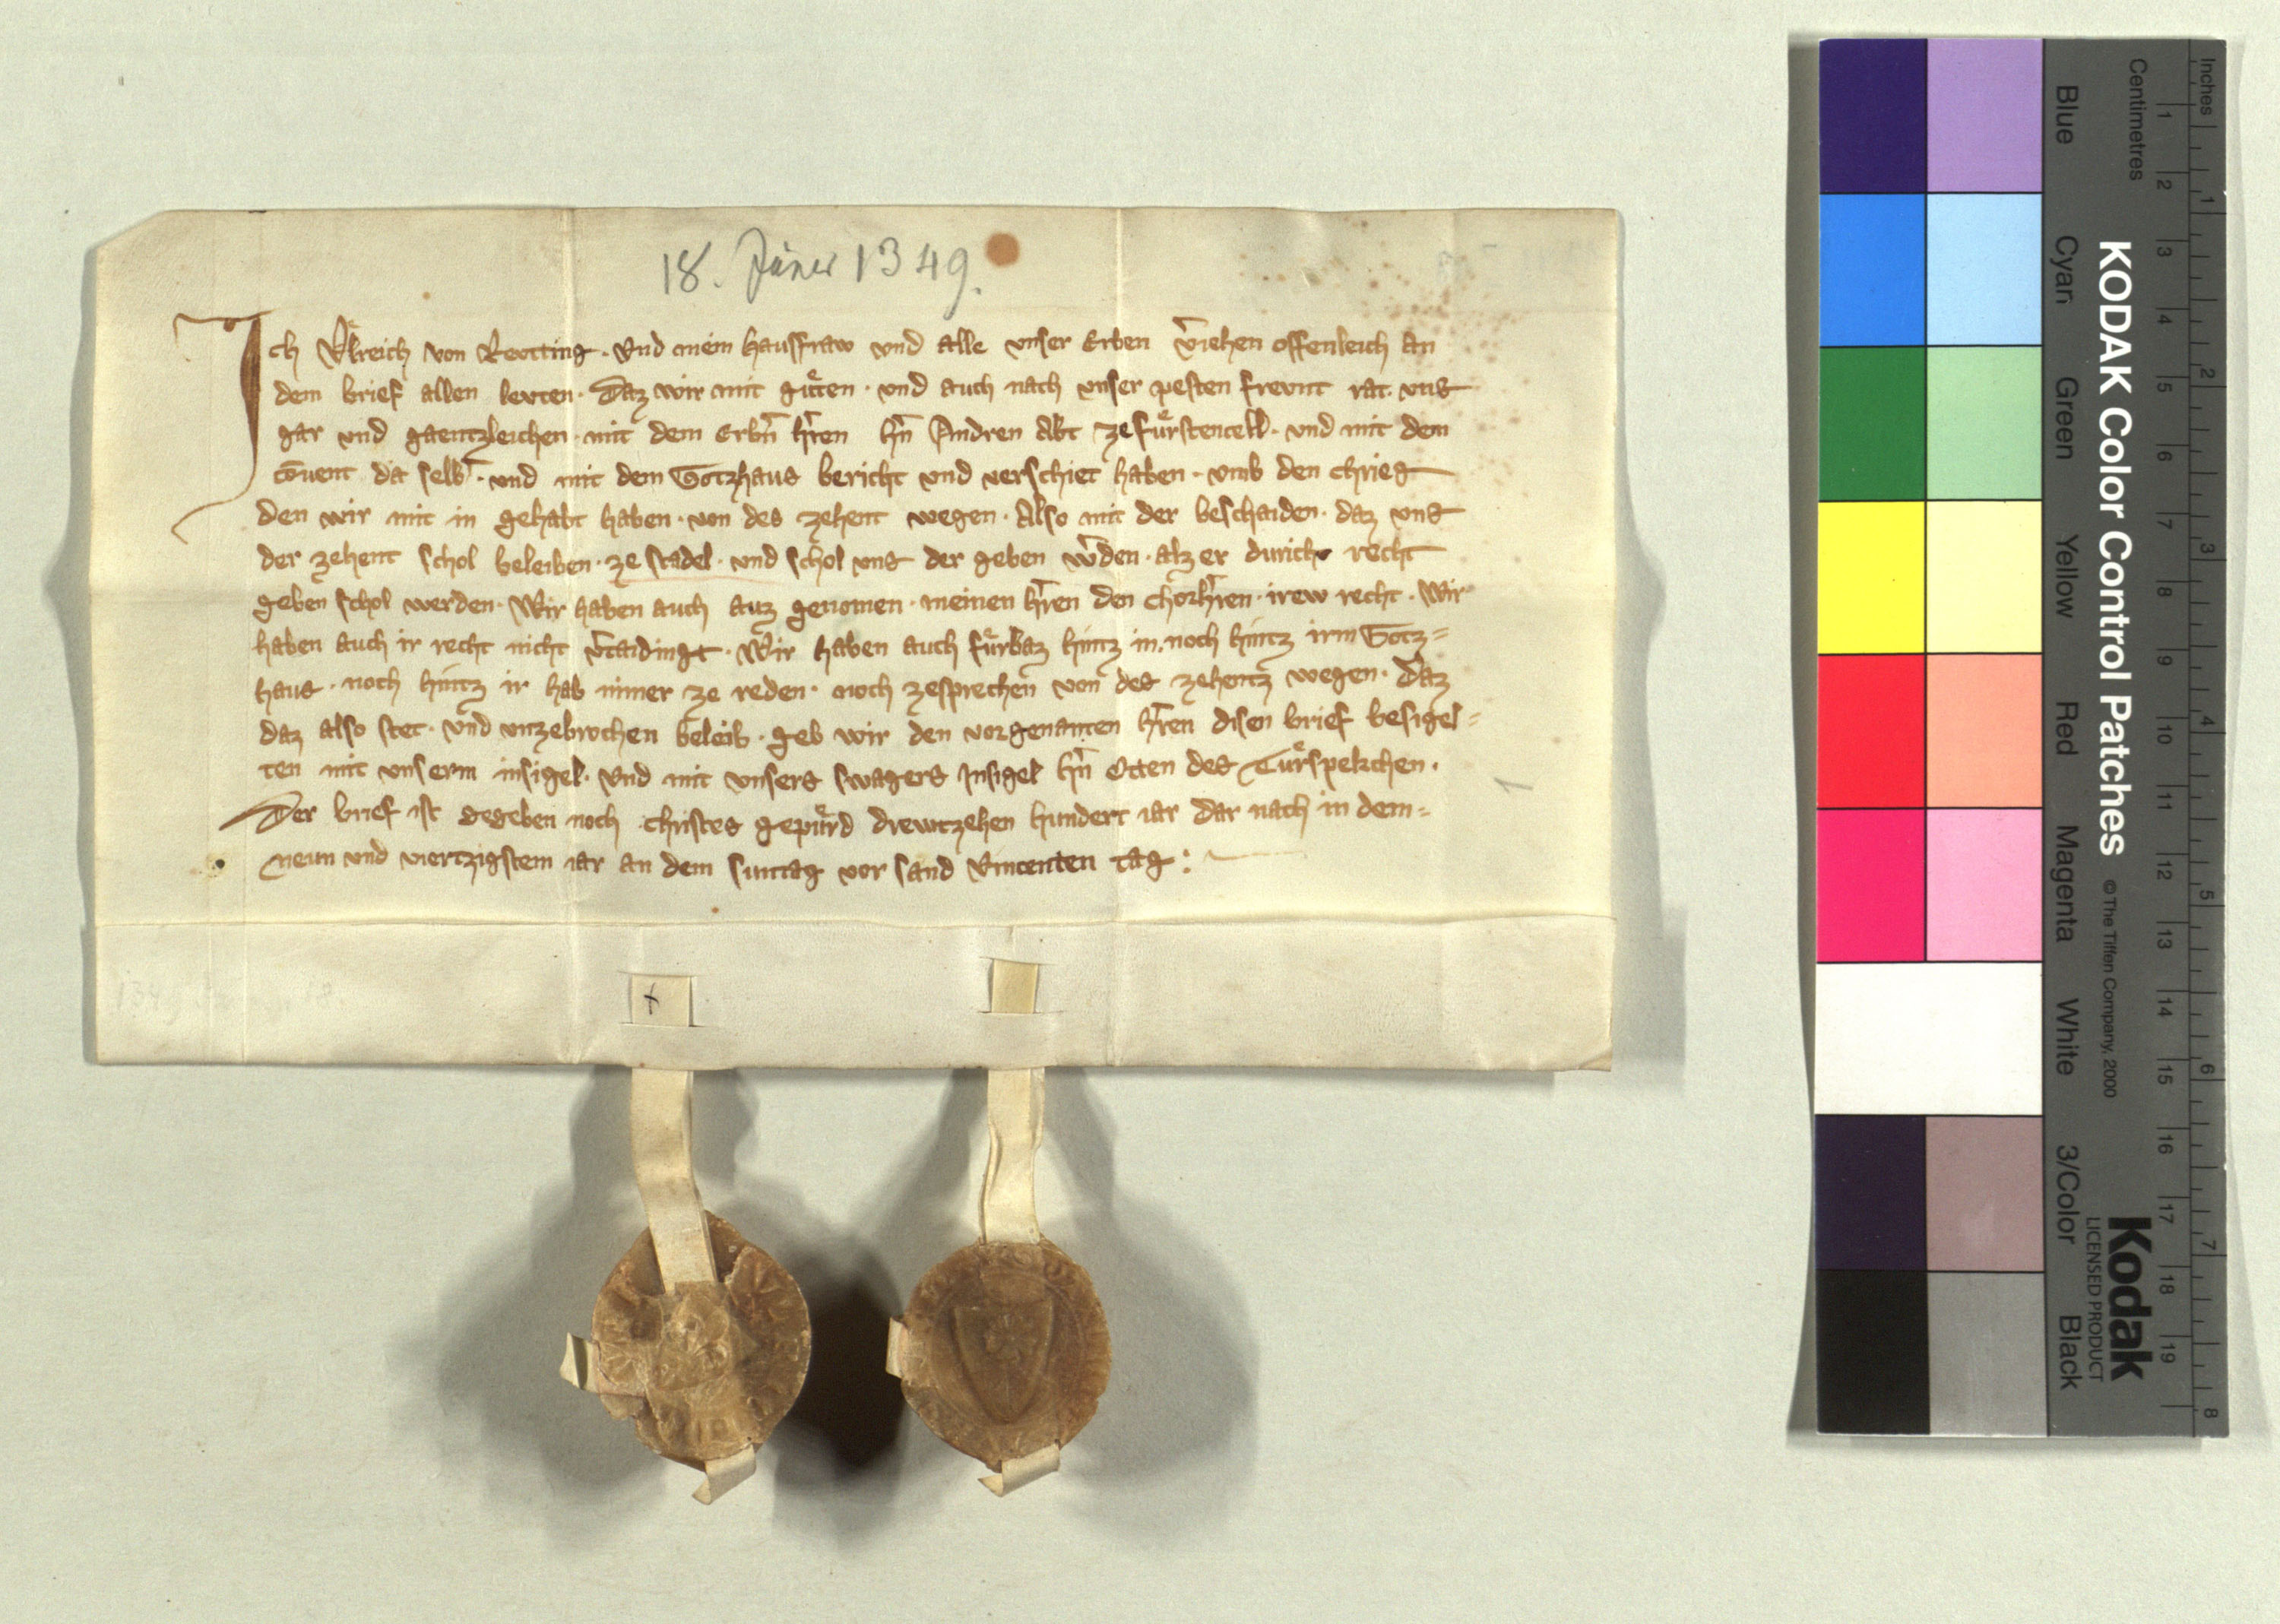 18. Jäner 1349.
Ich Vͤlreich von Reotting · Vnd mein hausfraw vnd alle vnser Erben v̄iehen offenleich an
dem brief allen levten · Daz wir mit guͤten · vnd auch nach vnser pesten frevnt rat · vns
gar vnd gaentzleichen · mit dem Erbn̄ hr̄en hn̄ Andren Abt ze Fuͤrstencell · vnd mit dem
Cōuent da selb̄ · vnd mit dem Gotzhaus bericht vnd verschiet haben · vmb den chrieg
den wir mit in gehabt haben · von des zehent wegen · Also mit der beschaiden · daz vns
der zehent schol beleiben · ze stadel · vnd schol vns der geben w̄den · alz er durich recht
geben schol werden · Wir haben auch auz genomen · meinen hr̄en den chorhr̄en · irew recht · Wir
haben auch ir recht nicht v̄taidingt · Wir haben auch fuͤrbaz hintz in · noch hintz irm Gotz=
haus · noch hintz ir hab nimer ze reden · noch zesprechen von des zehentz wegen · Daz
daz also stet · vnd vnzebrochen beleib · geb wir den vorgenanten hr̄en disen brief besigel=
ten mit vnserm insigel · Vnd mit vnsers swagers Insigel hn̄ Otten des Tuͤrspekchen ·
Der brief ist gegeben noch christes gepuͤrd drewtzehen hundert iar dar nach in dem=
neun vnd viertzigstem iar an dem suntag vor sand Vincenten tag :
KODAK Color Control Patches © The Tiffen Company, 2000
Kodak
LICENSED PRODUCT
Blue Cyan Green Yellow Red Magenta White 3/Color Black
Inches 1 2 3 4 5 6 7 8
Centimetres 1 2 3 4 5 6 7 8 9 10 11 12 13 14 15 16 17 18 19